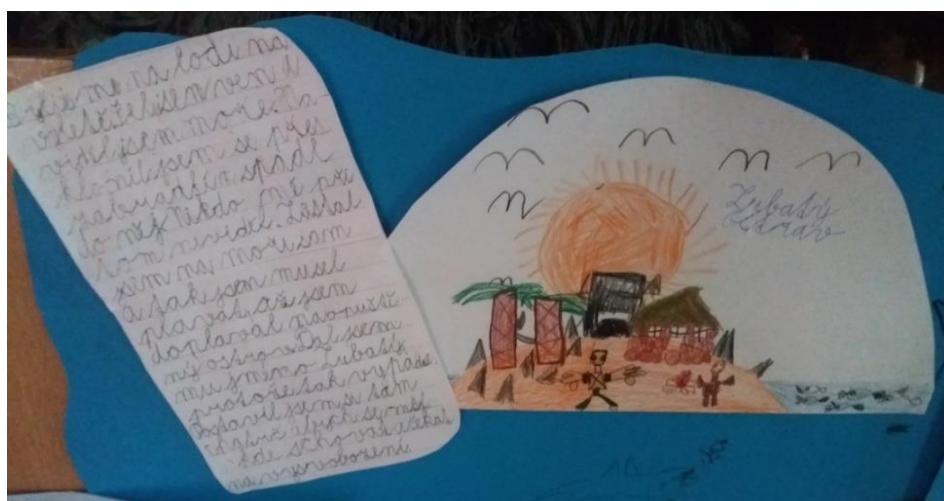 me na lodi na
jsem ven a
viděl jsem moře. Na-
klonil jsem se přes
spadl
do něj. Nikdo mě při
tom neviděl. Zůstal
jsem na moři sam
a tak jsem musel
plavat, až jsem
doplaval na opuště-
ný ostrov. Dal jsem
mu jméno Zubatý
protože tak vypadá.
Postavil jsem si tam
abych se měl
kde schovat a čekal
na vysvobození.
Zubatý
ostrov